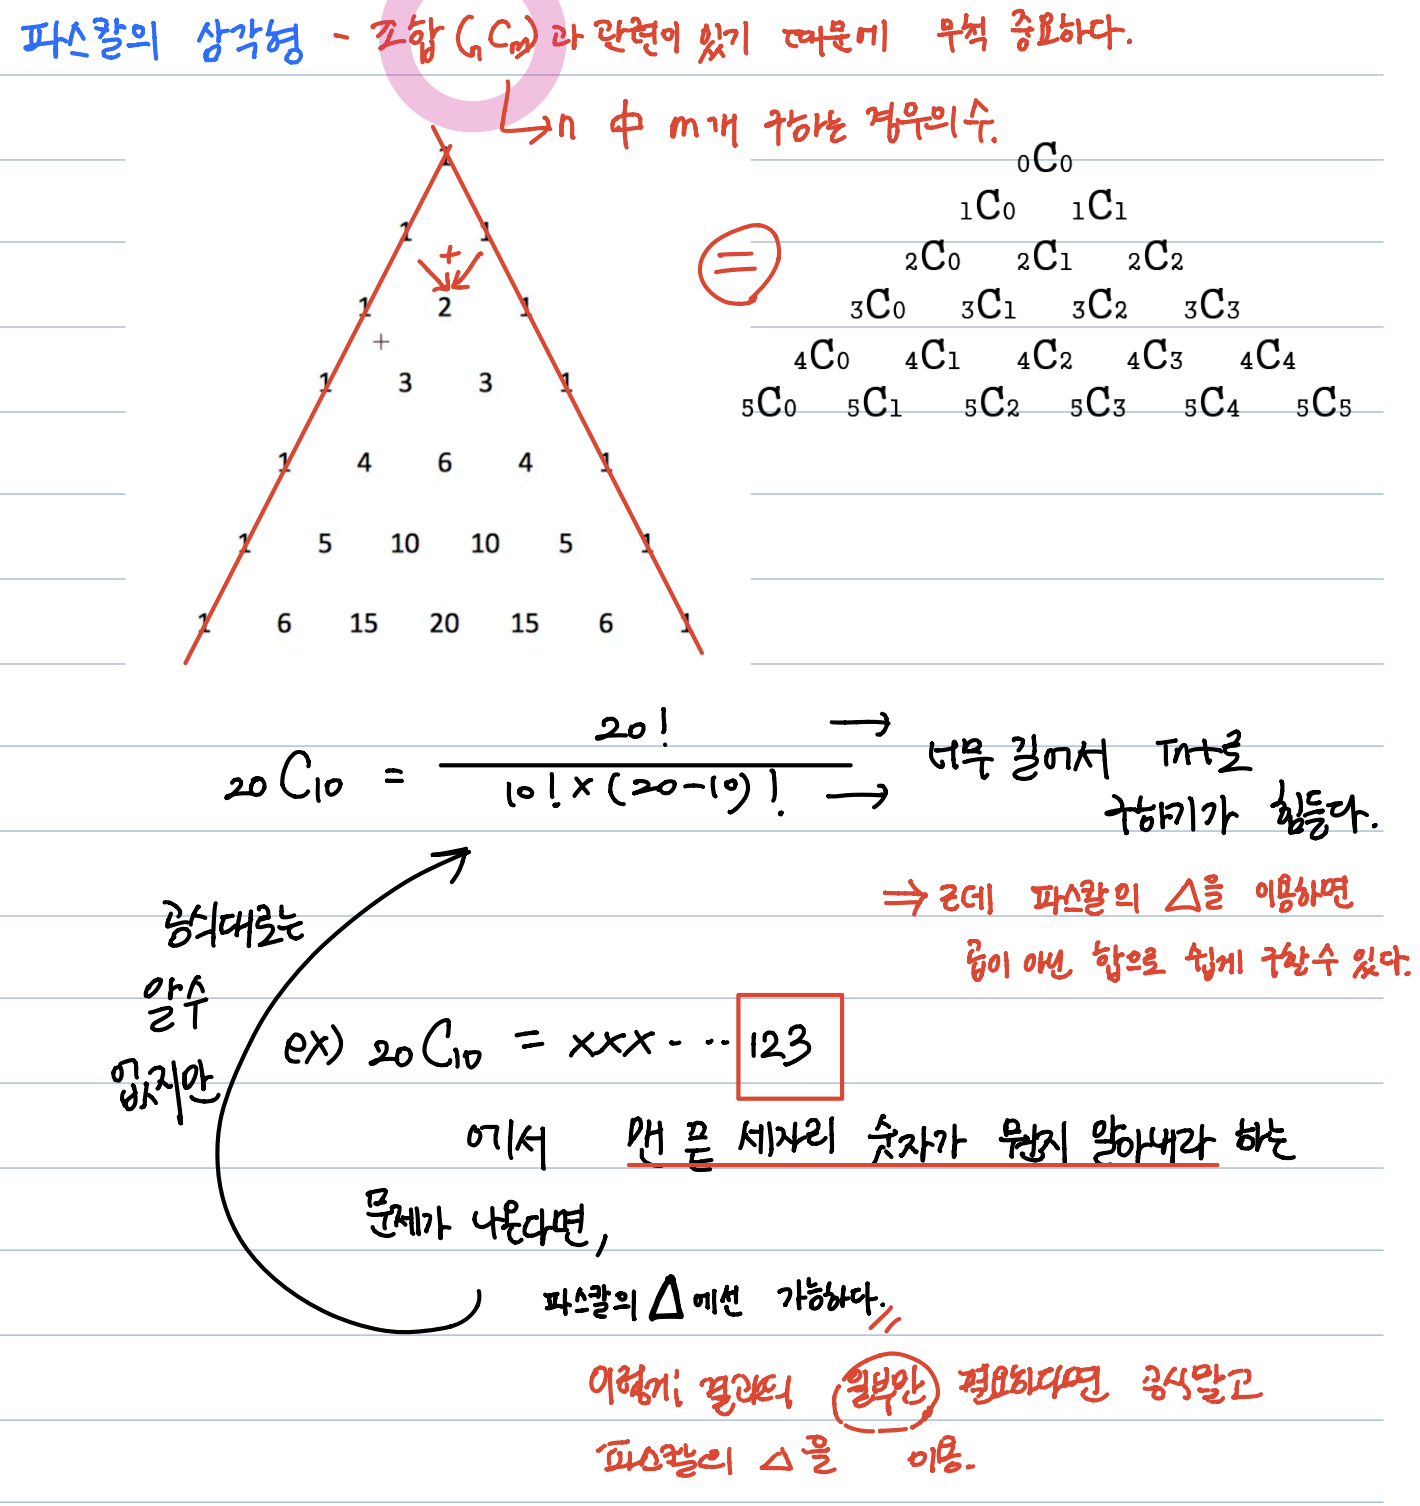 파스칼의 삼각형 - 조합(nCm)과 관련이 있기 때문에 무척 중요하다.
→ n 中 m개 구하는 경우의수.
1
1 1
+
1 2 1
+
1 3 3 1
1 4 6 4 1
1 5 10 10 5 1
1 6 15 20 15 6 1
=
0C0
1C0 1C1
2C0 2C1 2C2
3C0 3C1 3C2 3C3
4C0 4C1 4C2 4C3 4C4
5C0 5C1 5C2 5C3 5C4 5C5
20C10 = 20! / 10! × (20-10)!
→ 너무 길어서 Int로
→ 구하기가 힘들다.
⇒ 근데 파스칼의 △을 이용하면
곱이 아닌 합으로 쉽게 구할수 있다.
공식대로는
알수
없지만
ex) 20C10 = xxx-···123
에서 맨 끝 세자리 숫자가 뭔지 알아내라 하는
문제가 나온다면,
파스칼의 △에선 가능하다.
이렇게 결과의 일부만 필요하다면 공식말고
파스칼의 △을 이용.